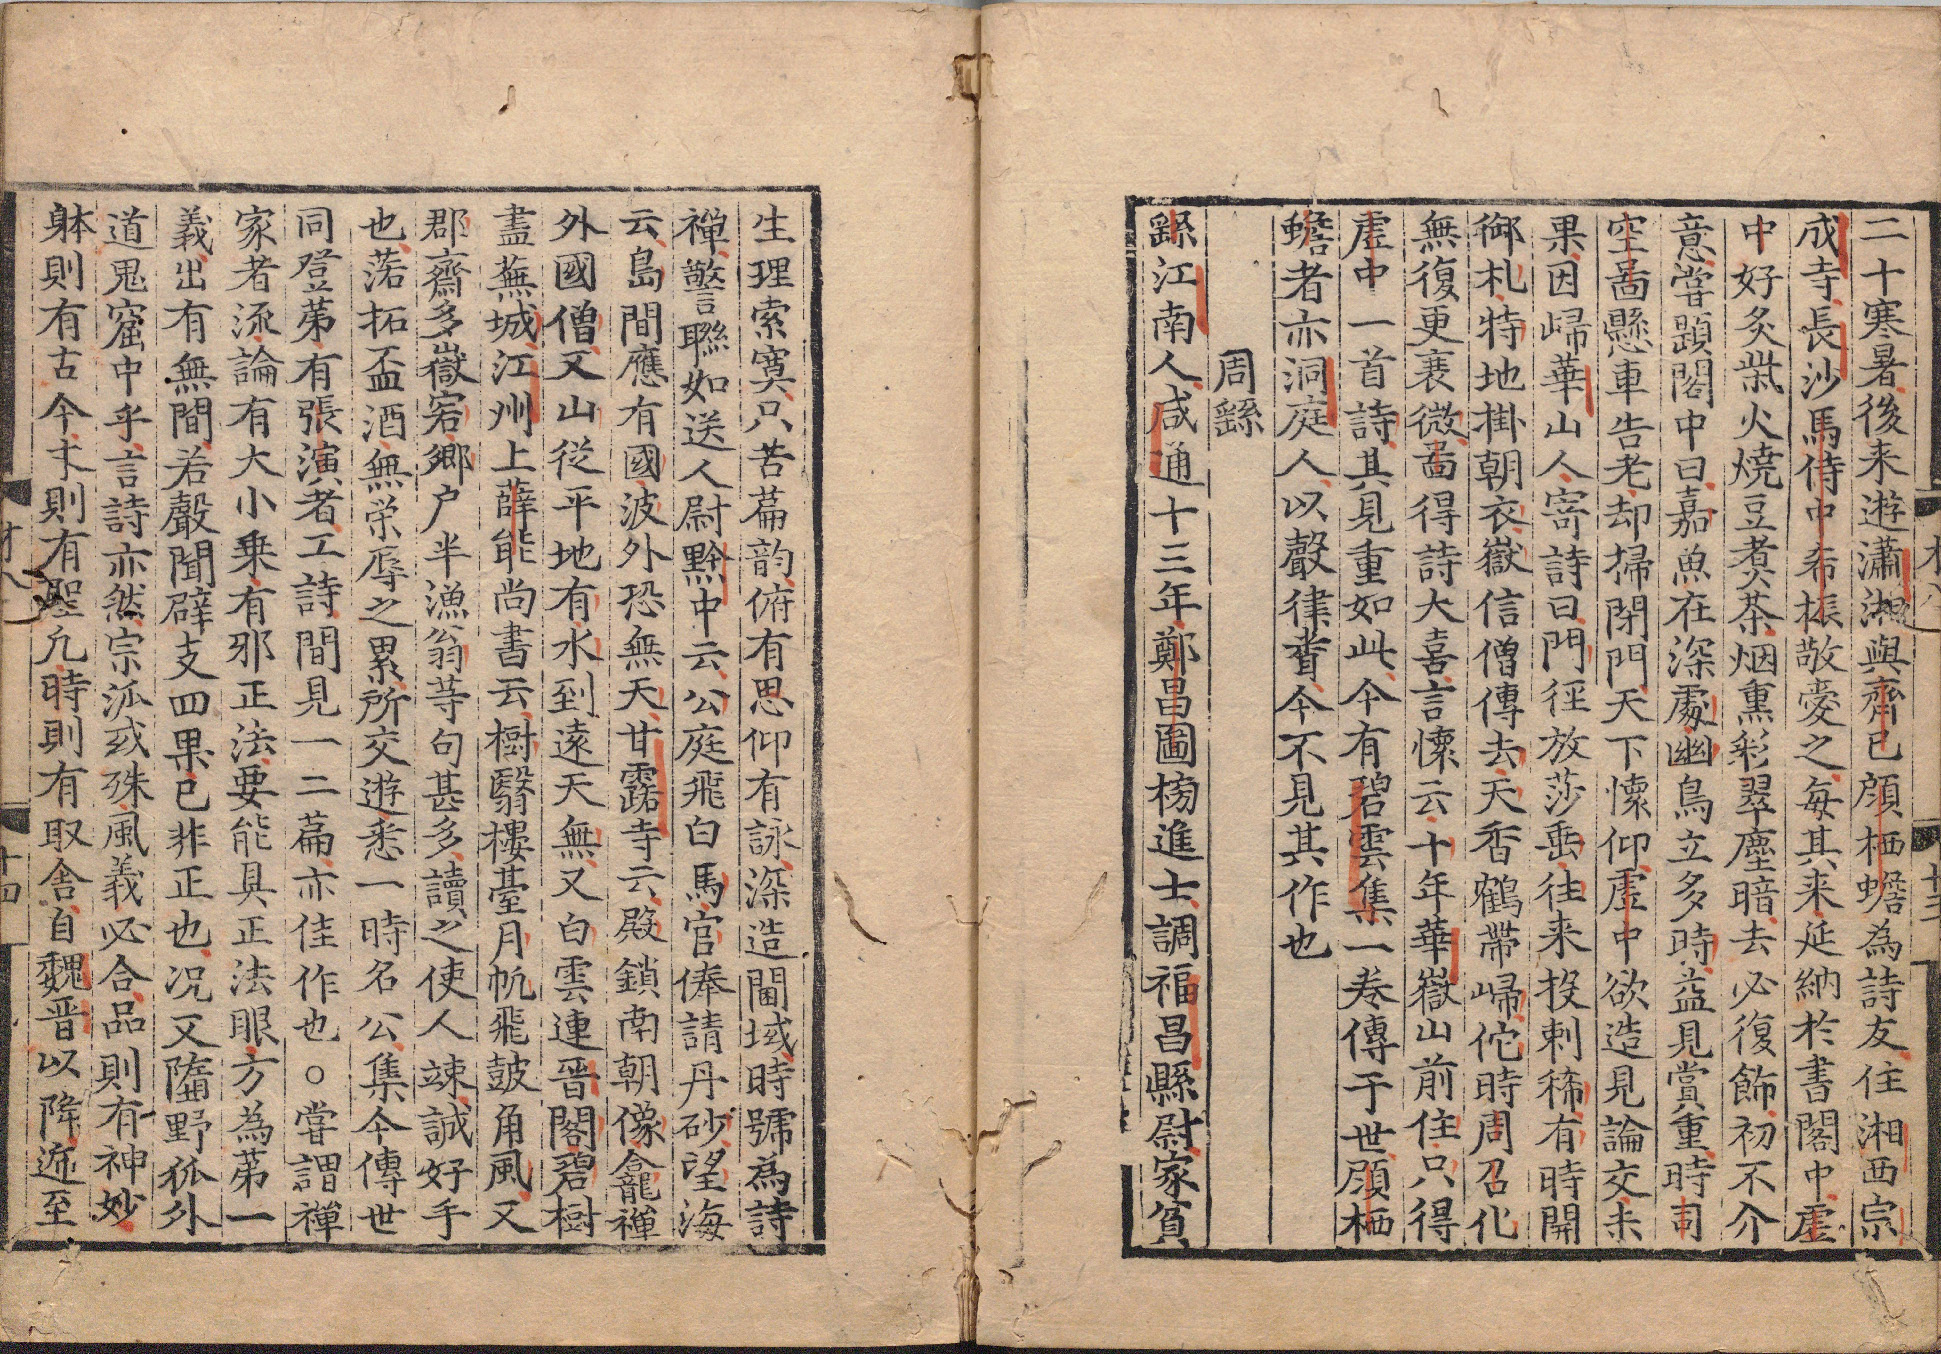 二十寒暑後来遊瀟湘與齊已顔栖蟾為詩友住湘西宗
成寺長沙馬侍中希振敬愛之每其来延納於書閣中虛
中好炙柴火燒豆煮茶烟熏彩翠塵暗去必復飾初不介
意嘗題閣中曰嘉魚在深處幽鳥立多時益見賞重時司
空啚懸車告老却掃閉門天下懷仰虛中欲造見論交未
果因歸華山人寄詩曰門徑放莎垂往来投刺稀有時開
御札特地掛朝衣嶽信僧傳去天香鶴帶歸佗時周召化
無復更衰微啚得詩大喜言懷云十年華嶽山前住只得
虛中一首詩其見重如此今有碧雲集一卷傳于世顔栖
蟾者亦洞庭人以聲律著今不見其作也
周繇
繇江南人咸通十三年鄭昌圖榜進士調福昌縣尉家貧
生理索寞只苦篇韵俯有思仰有詠深造閫域時號為詩
禅警聯如送人尉黔中云公庭飛白馬官俸請丹砂望海
云島間應有國波外恐無天甘露寺云殿鎖南朝像龕禅
外國僧又山從平地有水到遠天無又白雲連晉閣碧樹
盡蕪城江州上薛能尚書云樹翳樓臺月帆飛鼓角風又
郡齋多嶽客鄉户半漁翁等句甚多讀之使人竦誠好手
也落拓盃酒無荣辱之累所交遊悉一時名公集今傳世
同登第有張演者工詩間見一二篇亦佳作也○嘗謂禅
家者流論有大小乗有邪正法要能具正法眼方為第一
義出有無間若聲聞辟支四果已非正也况又墮野狐外
道鬼窟中乎言詩亦然宗派或殊風義必合品則有神妙
躰則有古今才則有聖凢時則有取舍自魏晋以降逓至